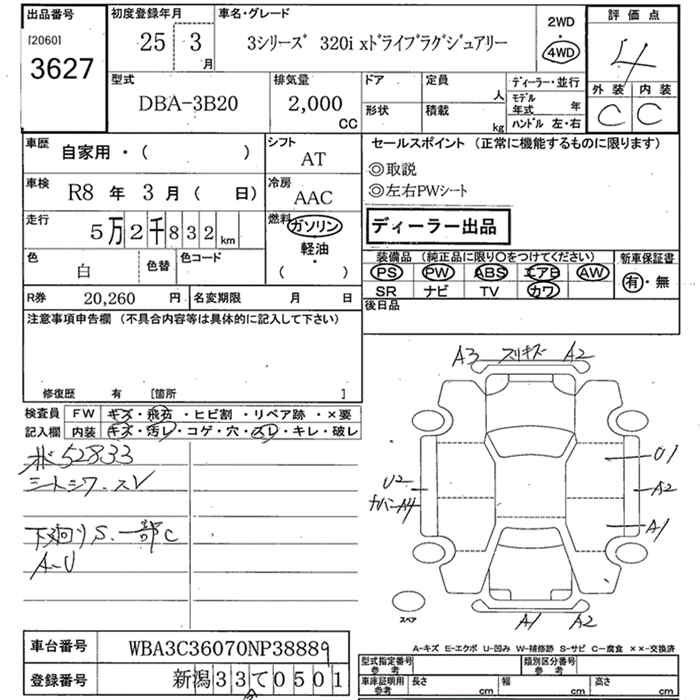 出品番号 初度登録年月 車名・グレード 2WD 評価点
[2060] 25 3 3シリーズ 320i xドライブラグジュアリー 4WD 4
3627 月
型式 排気量 ドア 定員 ディーラー・並行 外装 内装
DBA-3B20 2,000 人 モデル年式 年 C C
CC 形状 積載 kg ハンドル 左・右
車歴 自家用・( ) シフト AT セールスポイント (正常に機能するものに限ります)
◎取説
車検 R8 年 3 月 ( 日) 冷房 AAC ◎左右PWシート
走行 5万2千832km 燃料 ガソリン ディーラー出品
軽油・
色 白 色替 色コード ( ) 装備品 (純正品に限り○をつけてください) 新車保証書
PS PW ABS エアB AW 有・無
R券 20,260 円 名変期限 月 日 SR ナビ TV カワ
注意事項申告欄 (不具合内容等は具体的に記入して下さい) 後日品
修復歴 有 [箇所 ]
検査員 FW キズ・飛石・ヒビ割・リペア跡・×要
記入欄 内装 キズ・汚レ・コゲ・穴・スレ・キレ・破レ
52833
シートシワ.スV
下廻りS.一部C
A-U
A3 スリキズ A2
U1
U2 A2
カバンA4 A1
スペア
A1 A2
A-キズ E-エクボ U-凹み W-補修跡 S-サビ C-腐食 ××-交換済
車台番号 WBA3C36070NP38889
登録番号 新潟33て0501
型式指定番号 参考 類別区分番号 参考
車庫証明用 参考 長さ cm 幅 cm 高さ cm